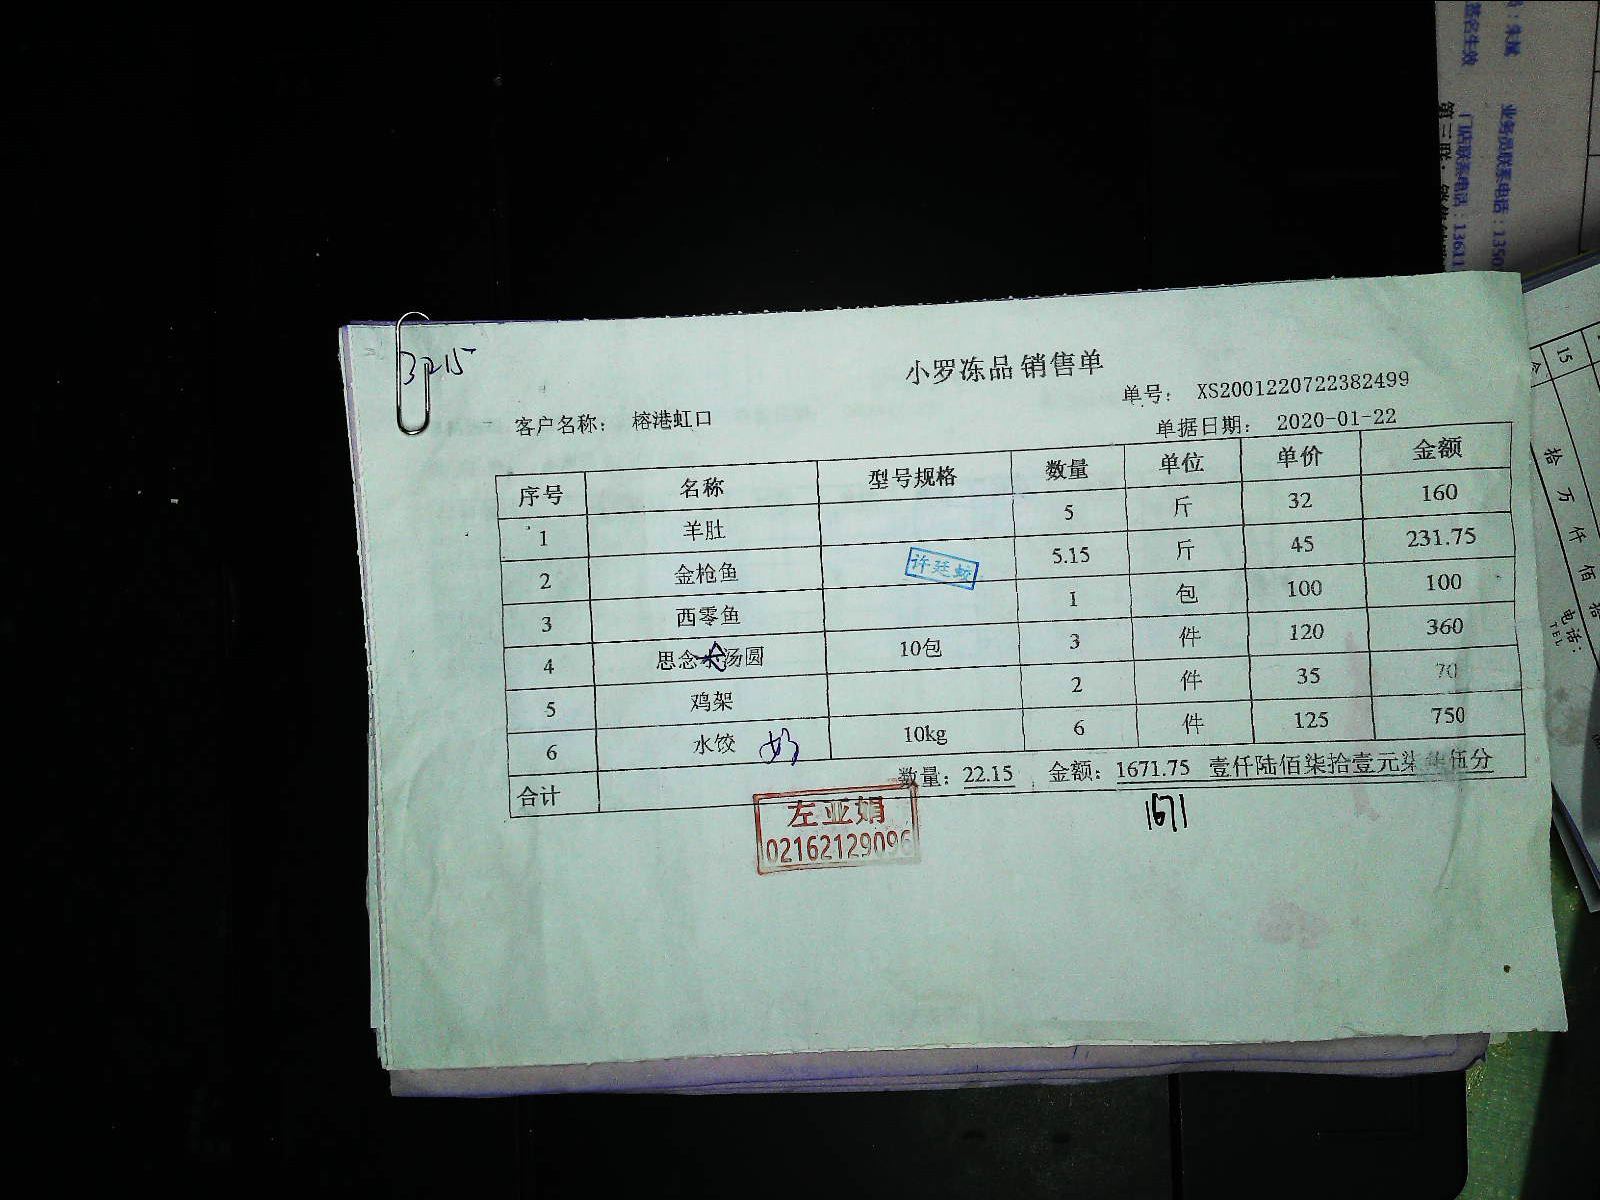 3215
小罗冻品 销售单
单号： XS2001220722382499
客户名称： 榕港虹口
单据日期： 2020-01-22
序号 名称 型号规格 数量 单位 单价 金额
1 羊肚 5 斤 32 160
2 金枪鱼 5.15 斤 45 231.75
3 西零鱼 1 包 100 100
4 思念 汤圆 10包 3 件 120 360
5 鸡架 2 件 35 70
6 水饺 10kg 6 件 125 750
合计 数量：22.15 金额：1671.75 壹仟陆佰柒拾壹元柒 伍分
许廷蛟
1671
左亚娟
02162129096
签名生效
业务员联系电话：1350
门店联系电话：13611
第三联：
15
拾 万 仟 佰 拾
电话：
TEL